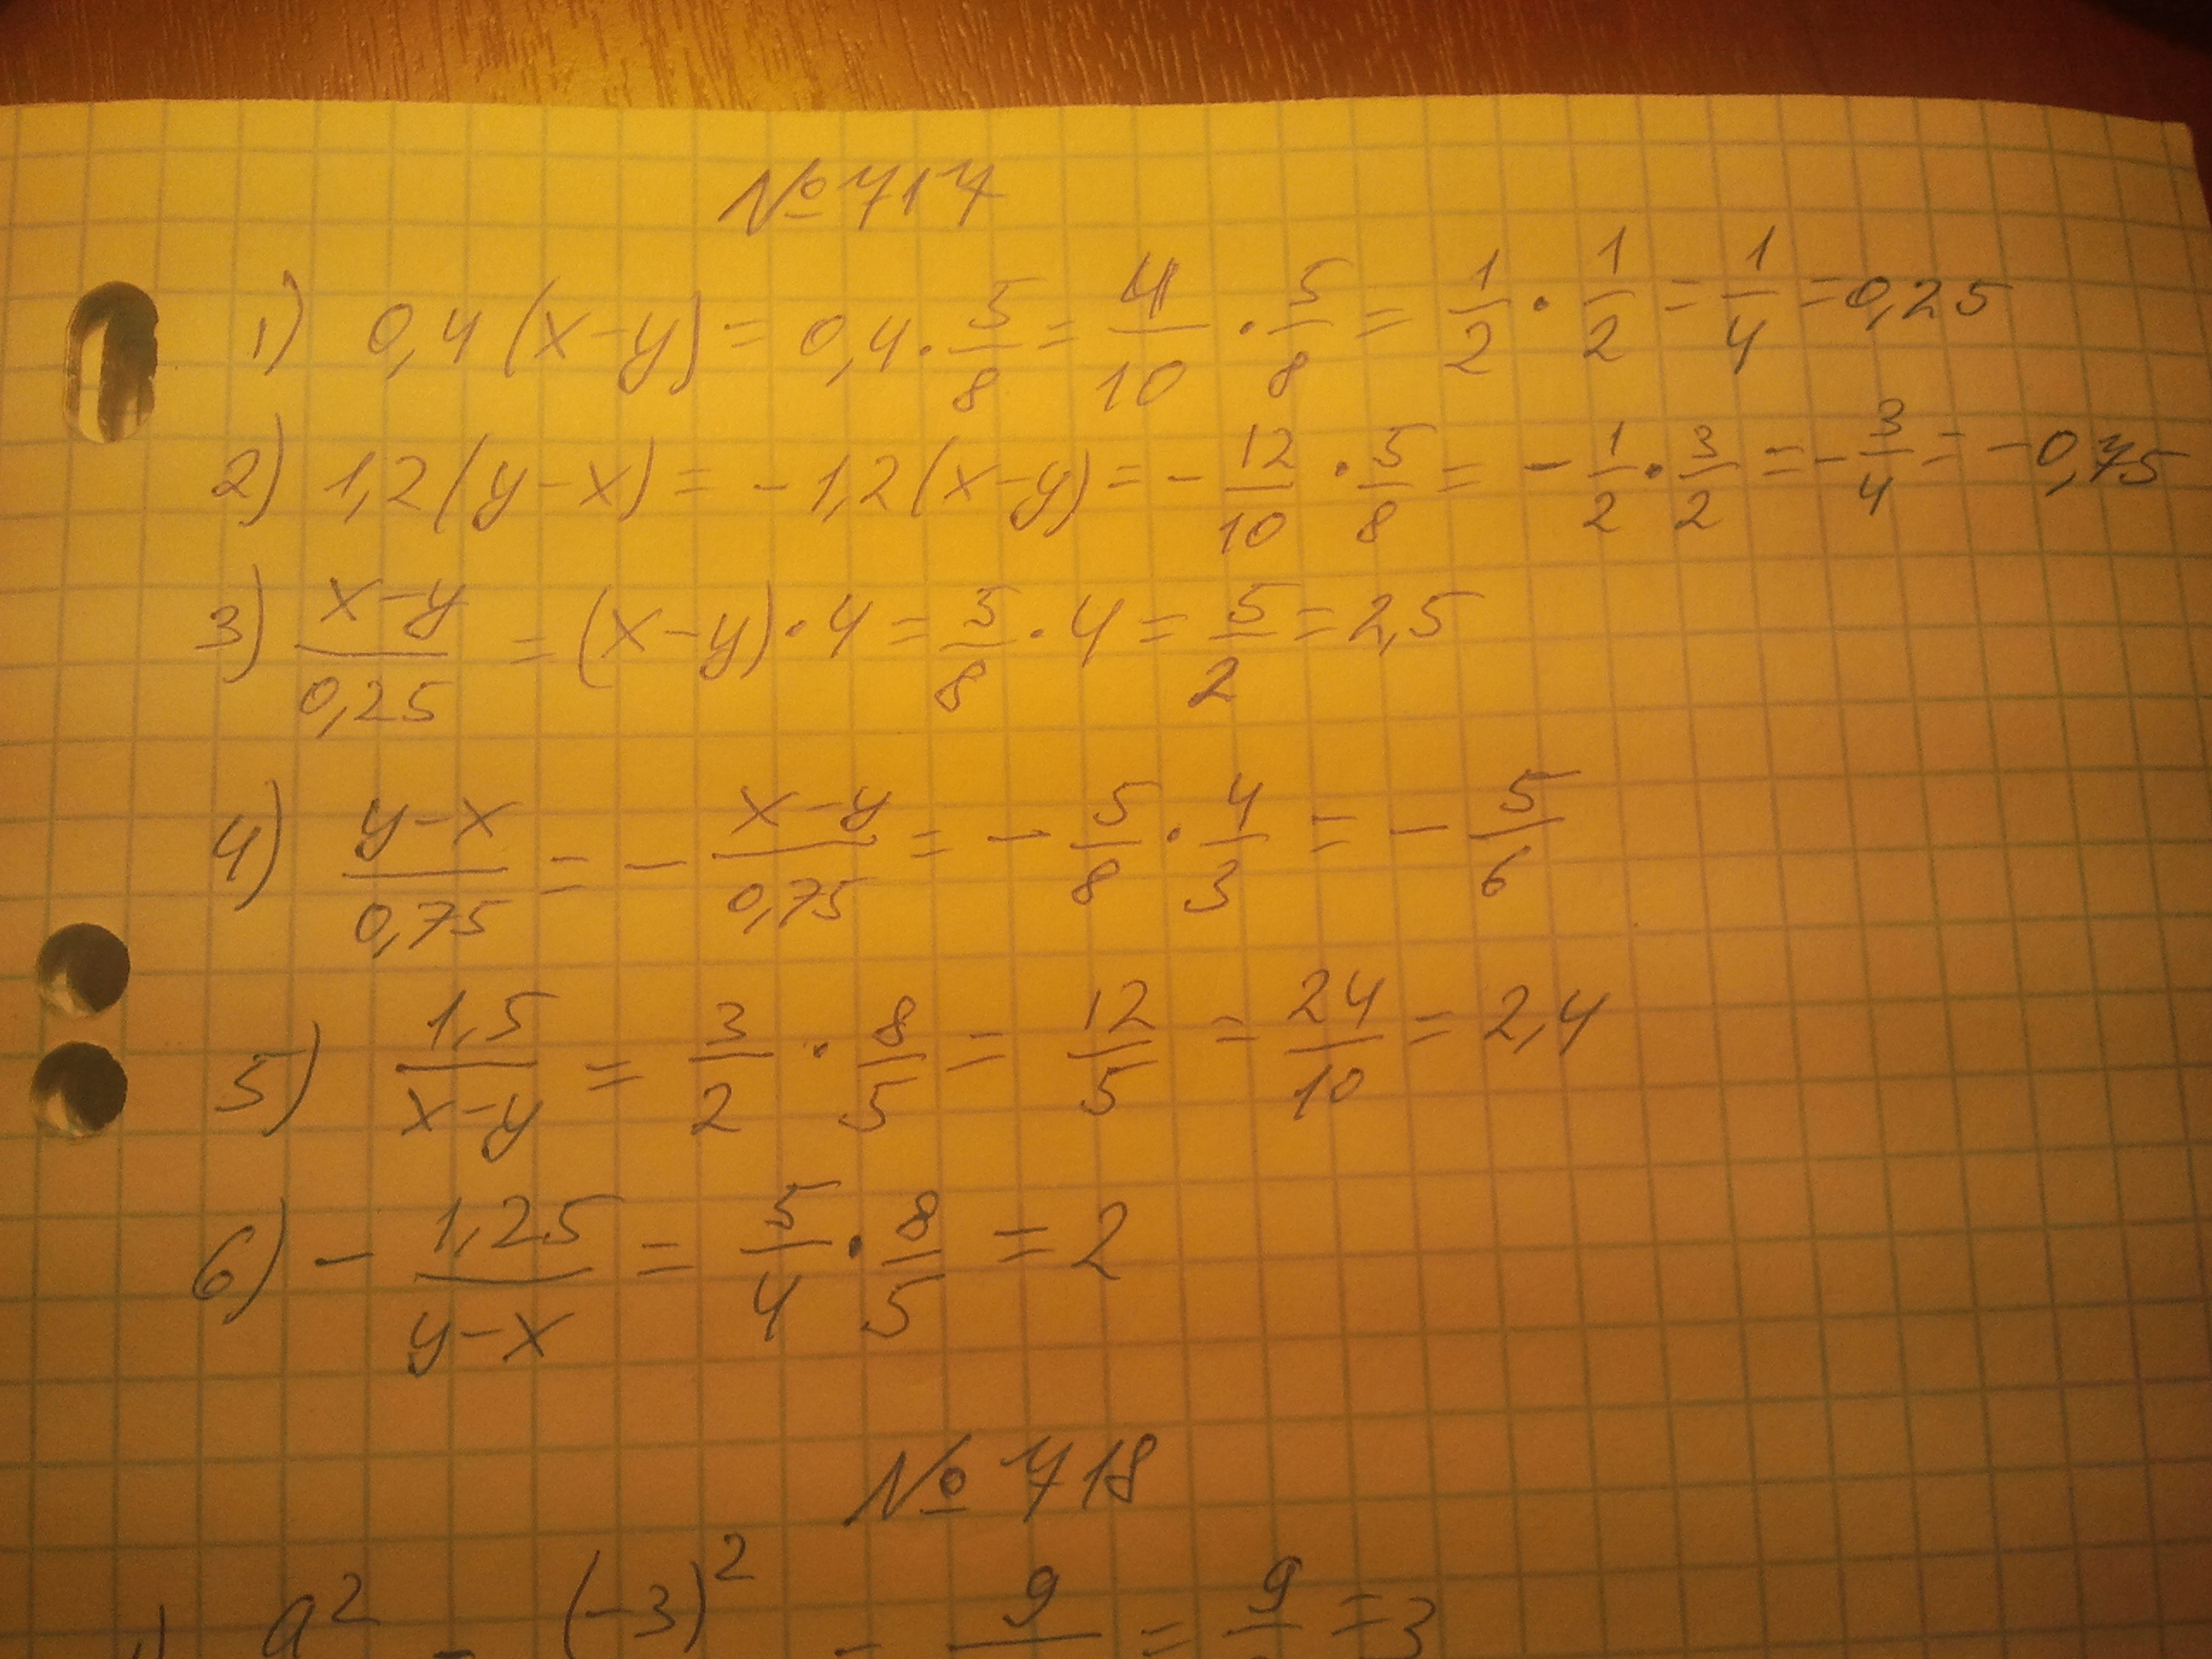 № 717
1) 0,4 (x-y) = 0,4 · 5/8 = 4/10 · 5/8 = 1/2 · 1/2 = 1/4 = 0,25
2) 1,2 (y-x) = -1,2 (x-y) = - 12/10 · 5/8 = - 1/2 · 3/2 = - 3/4 = -0,75
3) x-y/0,25 = (x-y) · 4 = 5/8 · 4 = 5/2 = 2,5
4) y-x/0,75 = - x-y/0,75 = - 5/8 · 4/3 = - 5/6
5) 1,5/x-y = 3/2 · 8/5 = 12/5 = 24/10 = 2,4
6) - 1,25/y-x = 5/4 · 8/5 = 2
№ 718
1) a² = (-3)² = 9 = 9 = 3